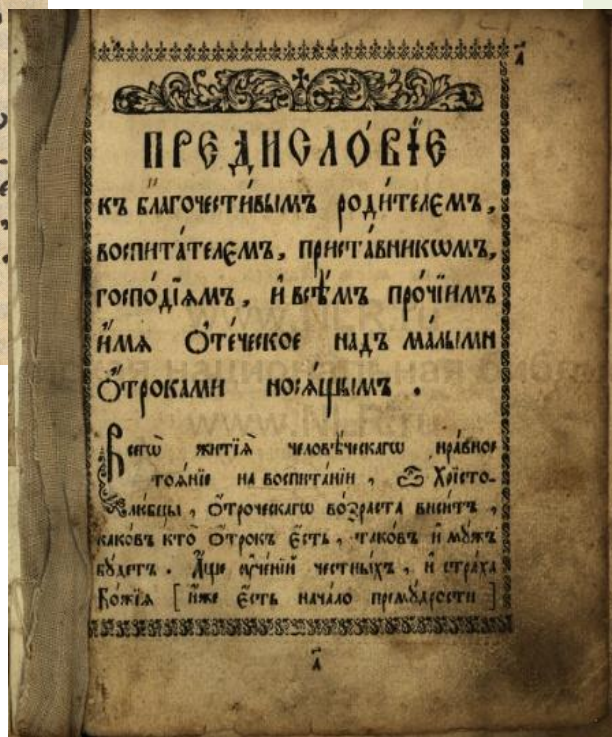 а҃
ПРЕДИСЛО́ВЇЕ
къ благочести́вымъ роди́телємъ,
воспита́телємъ, приста́вникѡмъ,
господі́ямъ, и҆ всѣ̑мъ про́чїимъ
и҆́мя Ѻ҆те́ческое надъ ма́лыми
Ѻ҆́троками носѧ́щымъ .
Всегѡ̀ житїѧ̀ человѣ́ческагѡ нра́вное
стоѧ́нїе на воспита́нїи , Ѽ Хрїсто-
любцы , ѻ҆́троческагѡ во́зраста виси́тъ ,
каковъ кто Ѻ҆́трокъ є҆́сть , таковъ и҆ мꙋ́жъ
бꙋ́детъ . А҆́ще ᲂу҆че́нїй честны́хъ , и҆ стра́ха
Бо́жїѧ [ и҆́же є҆́сть нача́ло премꙋ́дрости ]
а҃
www.NLR.ru